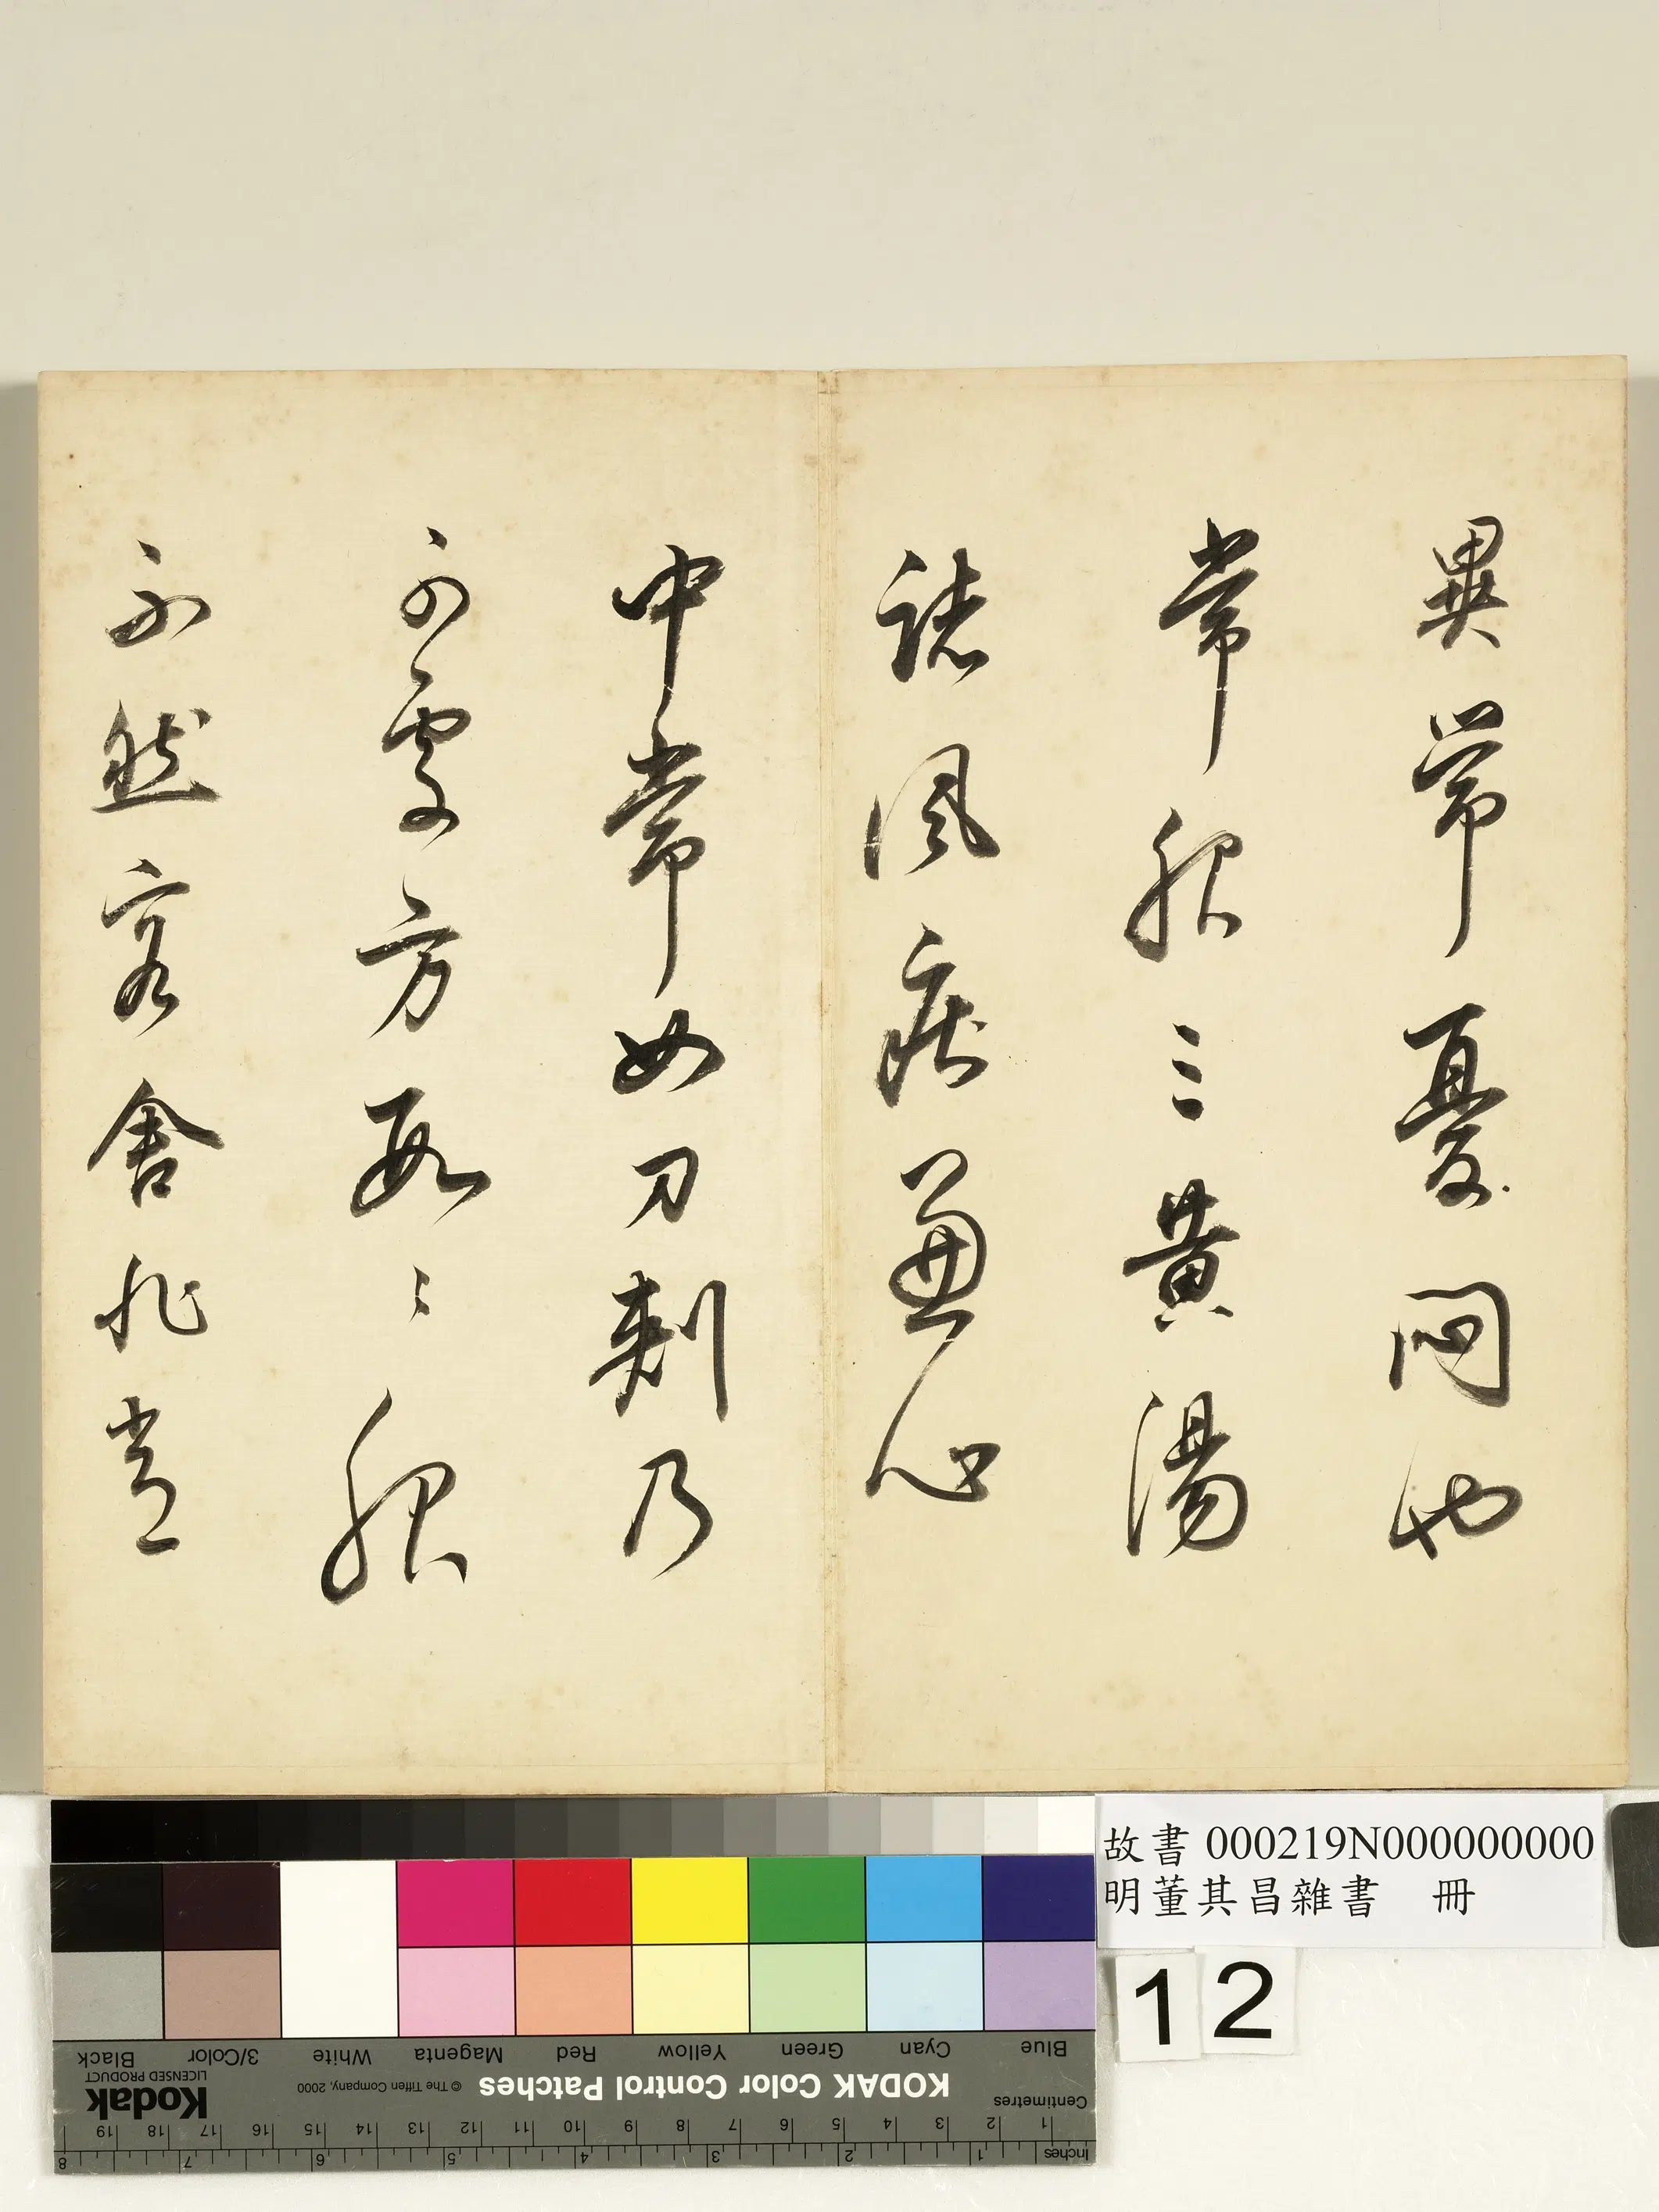 異常憂悶也
常服三黃湯
諸風疾兼心
中常如刀刺乃
可處方服
不然客舍非
故書 000219N000000000
明董其昌雜書 冊
12
Blue Cyan Green Yellow Red Magenta White 3/Color Black
KODAK Color Control Patches © The Tiffen Company, 2000 Kodak LICENSED PRODUCT
Centimetres 1 2 3 4 5 6 7 8 9 10 11 12 13 14 15 16 17 18 19
Inches 1 2 3 4 5 6 7 8